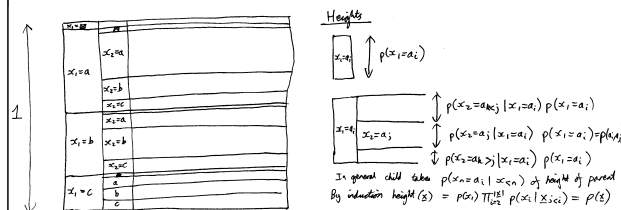 Heights
x₁=aᵢ
p(x₁=aᵢ)
1
x₁=a
x₂=a
x₂=b
x₂=c
x₁=b
x₂=a
x₂=b
x₂=c
x₁=c
a
b
c
x₁=aᵢ
x₂=aⱼ
p(x₂=aₖ<ⱼ | x₁=aᵢ) p(x₁=aᵢ)
p(x₂=aⱼ | x₁=aᵢ) p(x₁=aᵢ)=p(aᵢaⱼ)
p(x₂=aₖ>ⱼ | x₁=aᵢ) p(x₁=aᵢ)
In general child takes p(xₙ=aᵢ | x<ₙ) of height of parent
By induction height(x) = p(x₁) ∏ᵢ₌₂^|x| p(xᵢ | xⱼ<ᵢ) = p(x)